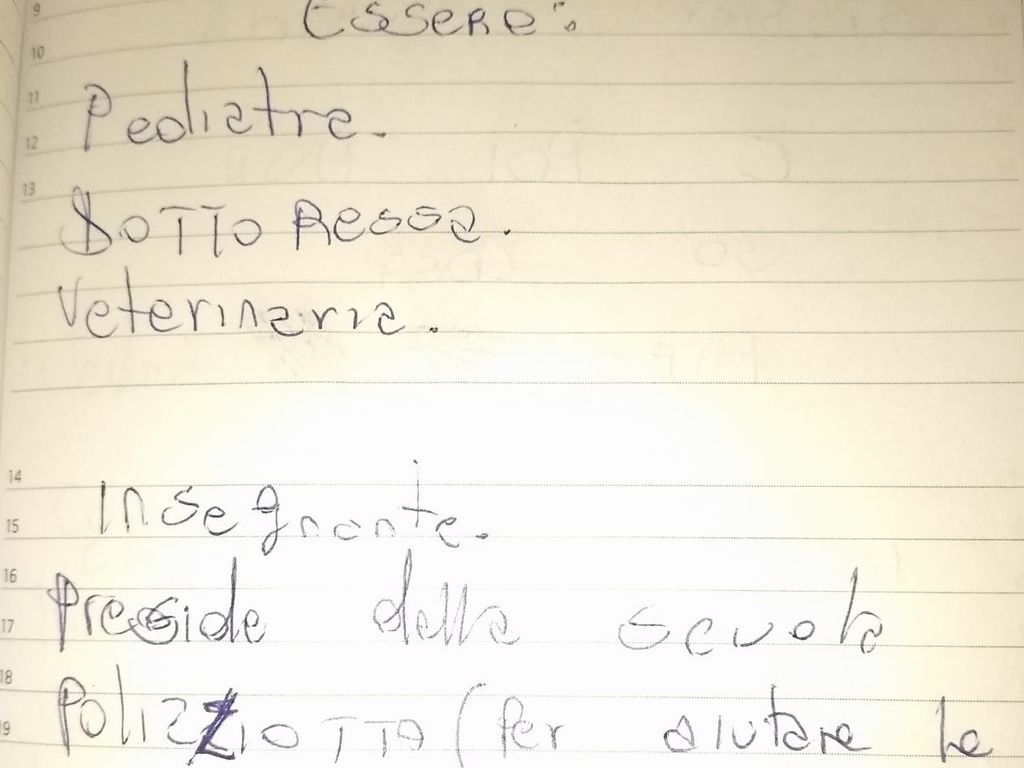 9
Essere:
10
11
Pediatra.
12
13
DoTTo Ressa.
Veterinaria.
14
Insegnante.
15
16
Preside della scuola
17
18
PoLizzioTTA (Per aiutare le
19